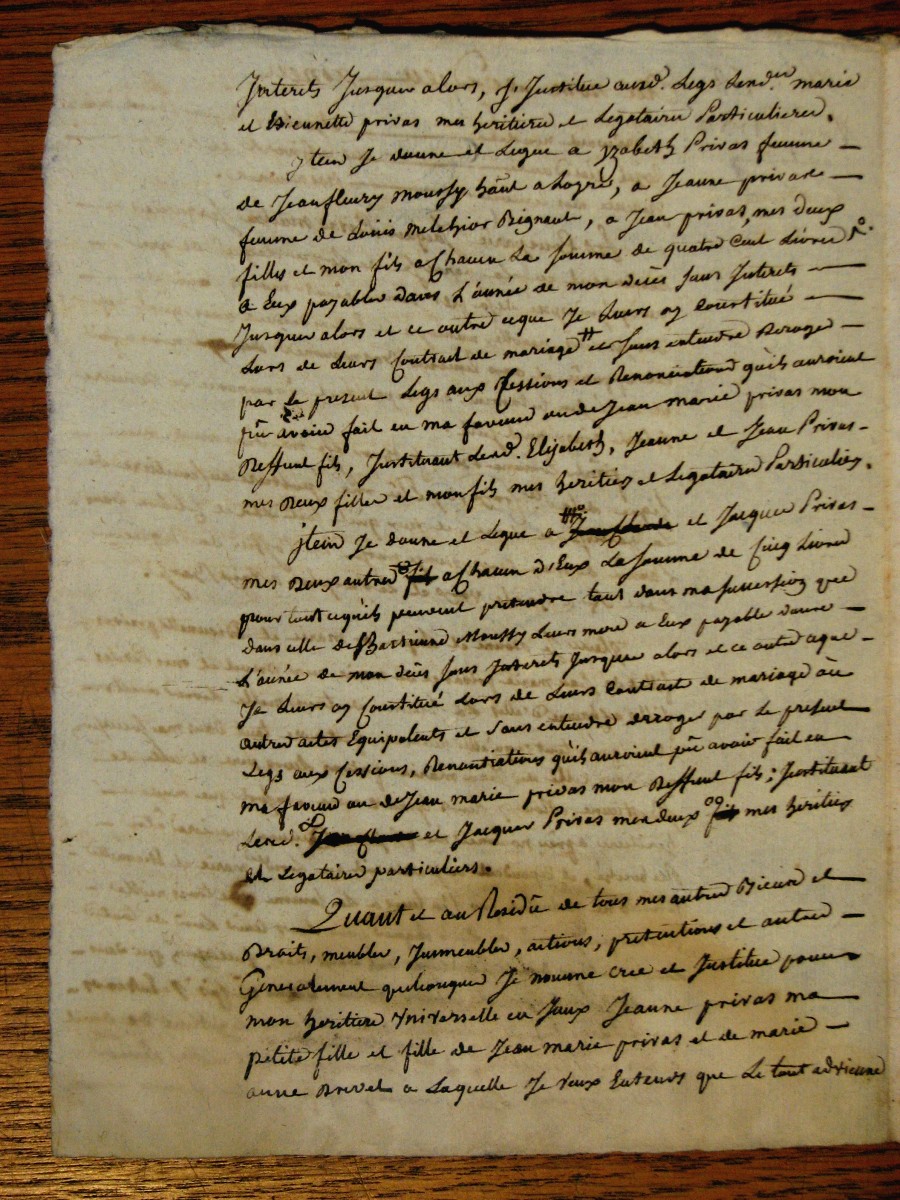 Interets Jusques alors, J'Institue ausd. Legs Lesd.es marie
et Etiennette privas mes heritieres et Legataires Particulieres.
Jtem Je donne et Legue a yzabeth Privas femme
de Jean fleury moussy hãnt a Logre, a Jeanne privas
femme de Loüis Melchior Bignaut, a Jean privas, mes deux
filles et mon fils a Chacun La somme de quatre Cent Livres
a Eux payables dans L'année de mon deces sans Interets
Jusques alors et ce outre ceque Je Leurs ay Constitué
Lors de Leurs Contrast de mariage # et sans entendre deroger
par le present Legs aux Cessions et Renonciations qu'ils auroient
pû avoir fait en ma faveur ou de Jean marie privas mon
deffunt fils, Instituant Lesd. Elizabeth, Jeanne et Jean Privas
mes deux filles et mon fils mes heritiers et Legataires Particuliers.
Jtem Je donne et Legue a et Jacques Privas
mes deux autres fils a Chacun d'Eux La somme de Cinq Livres
pour tout cequ'ils peuvent pretendre tant dans ma succession que
dans celle de Moussy Leurs mere a Eux payable dans
L'année de mon deces sans Interets Jusques alors et ce outre ceque
Je Leurs ay Constitué Lors de Leurs Contrast de mariage où
autres actes Equipolents et sans entendre derroger par Le present
Legs aux Cessions, Renontiations qu'ils auroient pû avoir fait en
ma faveur ou de Jean marie privas mon deffunt fils; Instituant
Lesd. et Jacques Privas mes deux fils mes heritiers
et Legataires particuliers.
Quant et au Residü de tous mes autres Biens et
Droits, meubles, Immeubles, actions, pretentions et autres
Generalement quelconques Je nomme Crée et Institue pour
mon heritiere Vniverselle en Jceux Jeanne privas ma
petite fille et fille de Jean marie privas et de marie
anne Brivet a Laquelle Je veux Entends que Le tout advienne